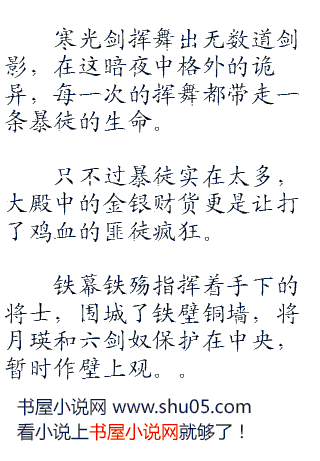 寒光剑挥舞出无数道剑
影，在这暗夜中格外的诡
异，每一次的挥舞都带走一
条暴徒的生命。
只不过暴徒实在太多，
大殿中的金银财货更是让打
了鸡血的匪徒疯狂。
铁幕铁殇指挥着手下的
将士，围城了铁壁铜墙，将
月瑛和六剑奴保护在中央，
暂时作壁上观。。
书屋小说网 www.shu05.com
看小说上书屋小说网就够了！